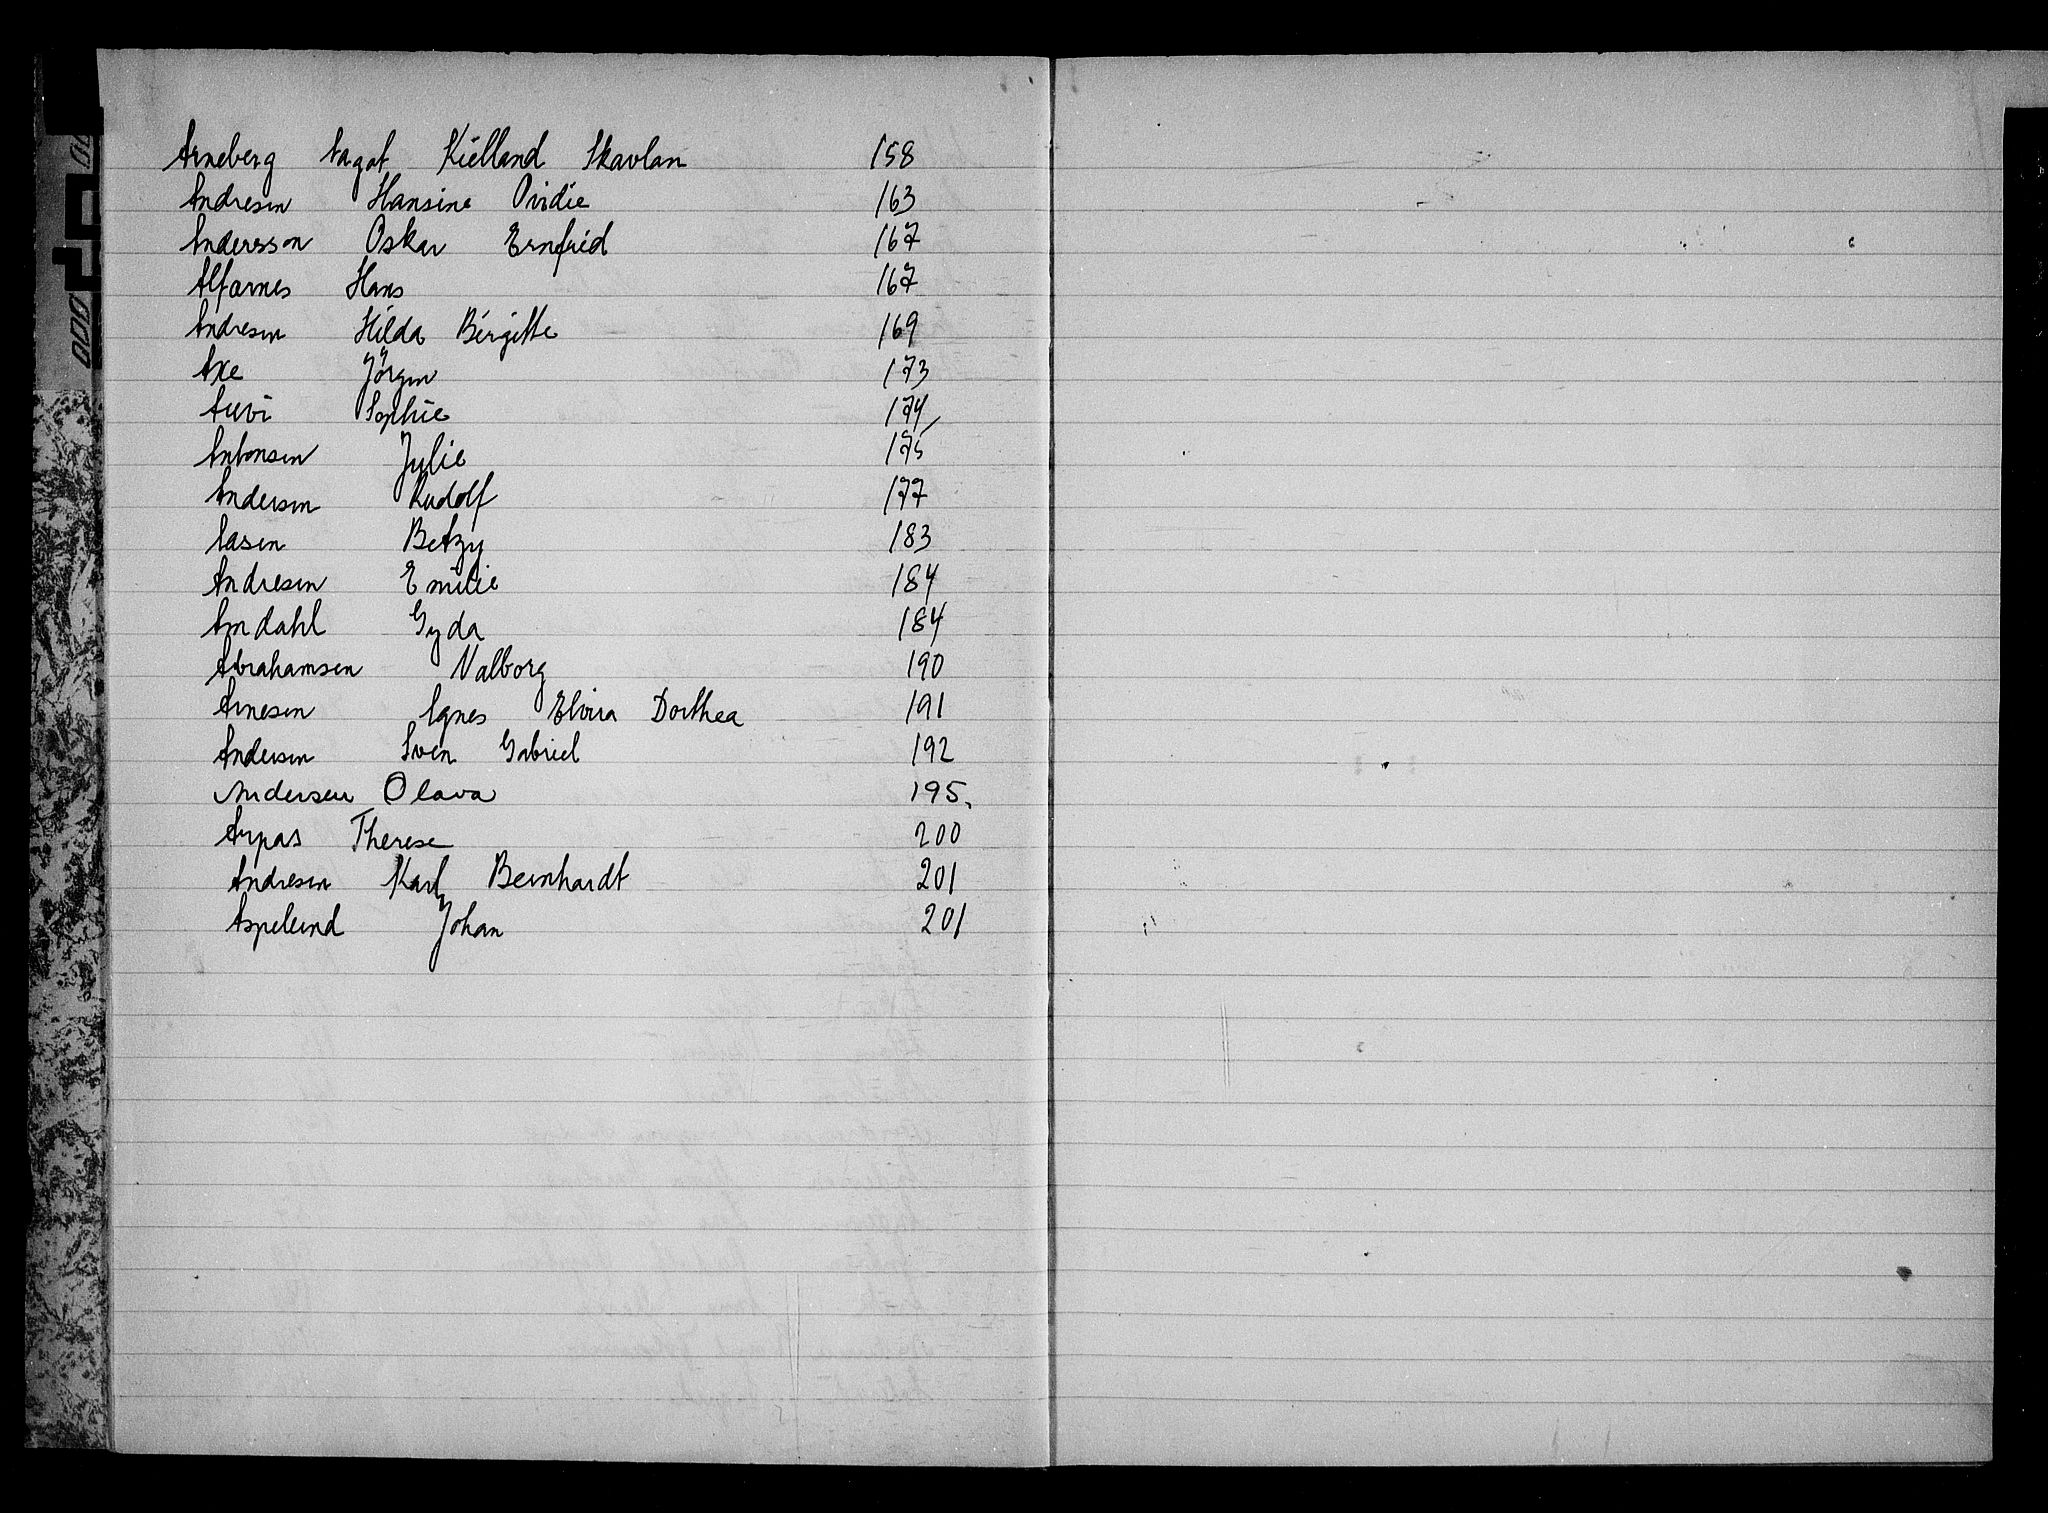 Arneberg Aagot Kielland Skavlan 158
Andresen Hansine Ovidie 163
Andersson Oskar Ernfrid 167
Alfarnes Hans 167
Andresen Hilda Birgitte 169
Axe Jörgen 173
Sophie 174
Antonsen Julie 175
Andersen Rudolf 177
Aasen Betzy 183
Andresen Emilie 184
Amdahl Gyda 184
Abrahamsen Valborg 190
Arnesen Agnes Elvira Dorthea 191
Andersen Sven Gabriel 192
Andersen Olava 195.
Arpas Therese 200
Andresen Karl Bernhardt 201
Aspelund Johan 201